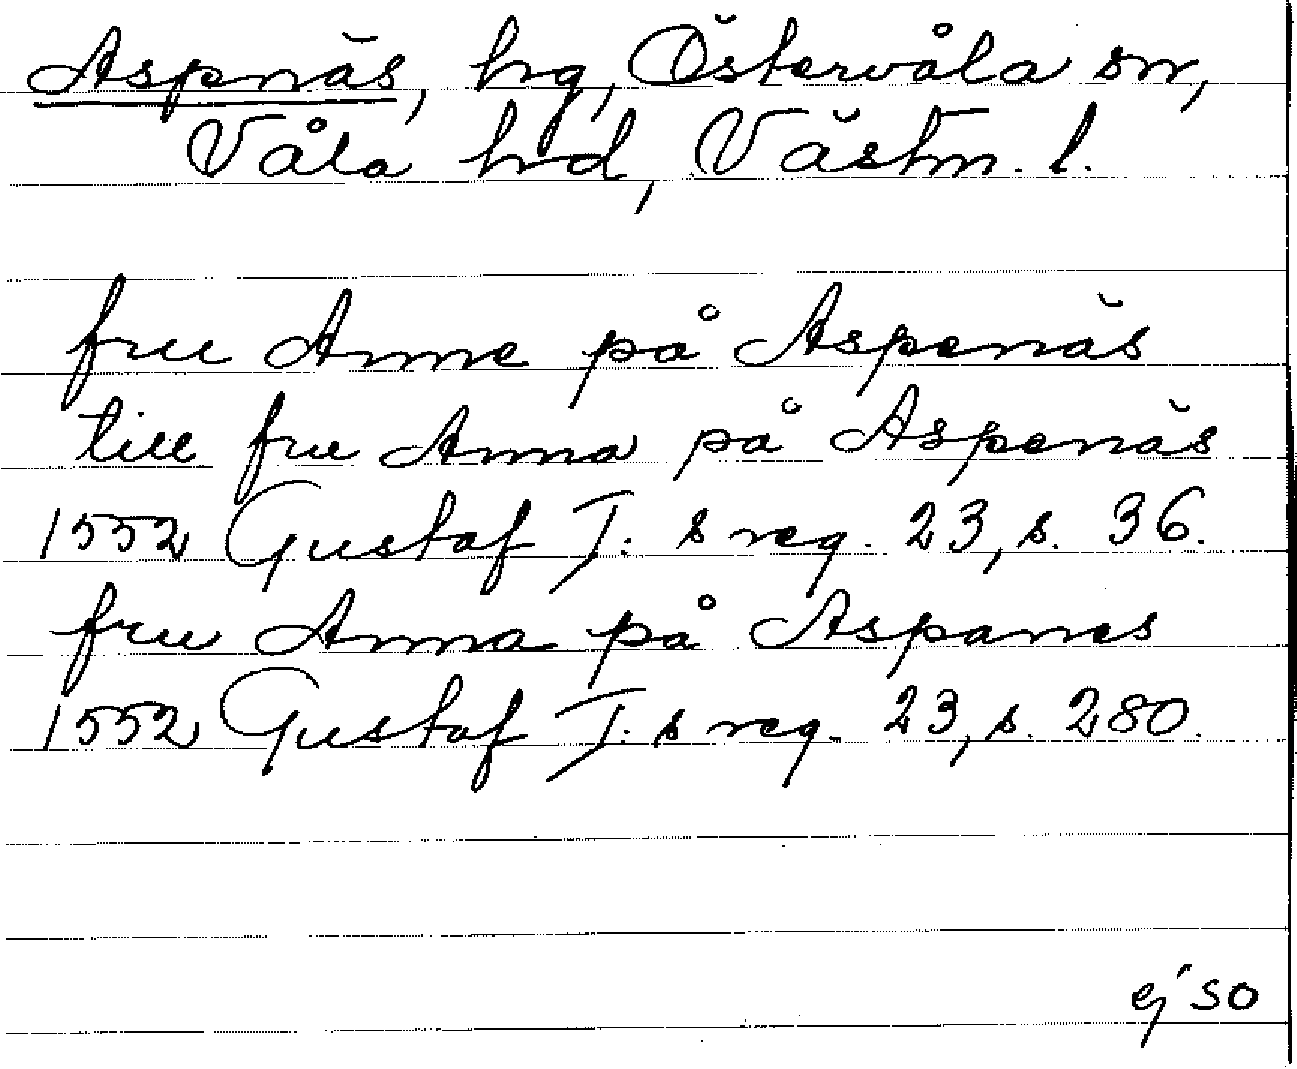 Aspnäs, hg, Östervåla sn,
Våla hd, Västm. l.
fru Anne på Aspenäs
till fru Anna på Aspenäs
1552 Gustaf I: s reg. 23, s. 36.
fru Anna på Aspanes
1552 Gustaf I: s reg. 23, s. 280.
ej SO